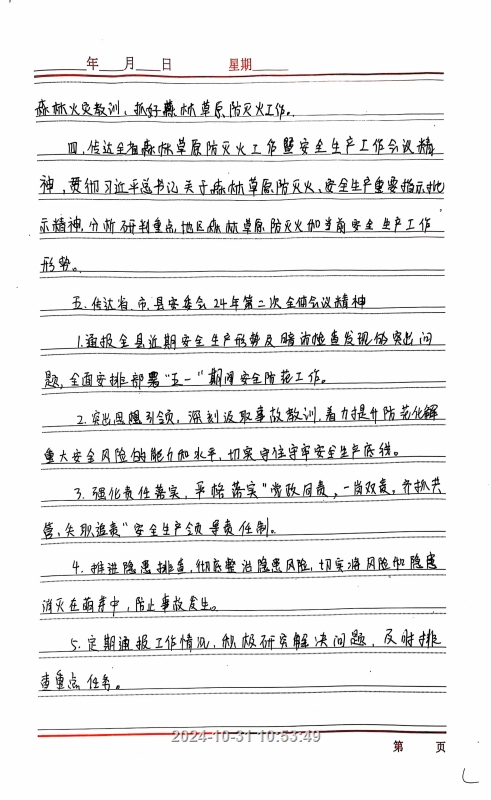 年 月 日 星期
森林火灾教训、抓好森林草原防灭火工作。
四、传达全省森林草原防灭火工作暨安全生产工作会议精
神,贯彻习近平总书记关于森林草原防灭火、安全生产重要指示批
示精神,分析研判重点地区森林草原防灭火和当前安全生产工作
形势。
五、传达省、市、县安委会24年第二次全体会议精神
1.通报全县近期安全生产形势及暗访检查发现的突出问
题,全面安排部署“五一”期间安全防范工作。
2.突出思想引领,深刻汲取事故教训,着力提升防范化解
重大安全风险的能力和水平,切实守住守牢安全生产底线。
3.强化责任落实,严格落实“党政同责,一岗双责,齐抓共
管、失职追责”安全生产领导责任制。
4.推进隐患排查,彻底整治隐患风险,切实将风险和隐患
消灭在萌芽中,防止事故发生。
5.定期通报工作情况,积极研究解决问题,及时排
查重点任务。
2024-10-31 10:53:49
第 页